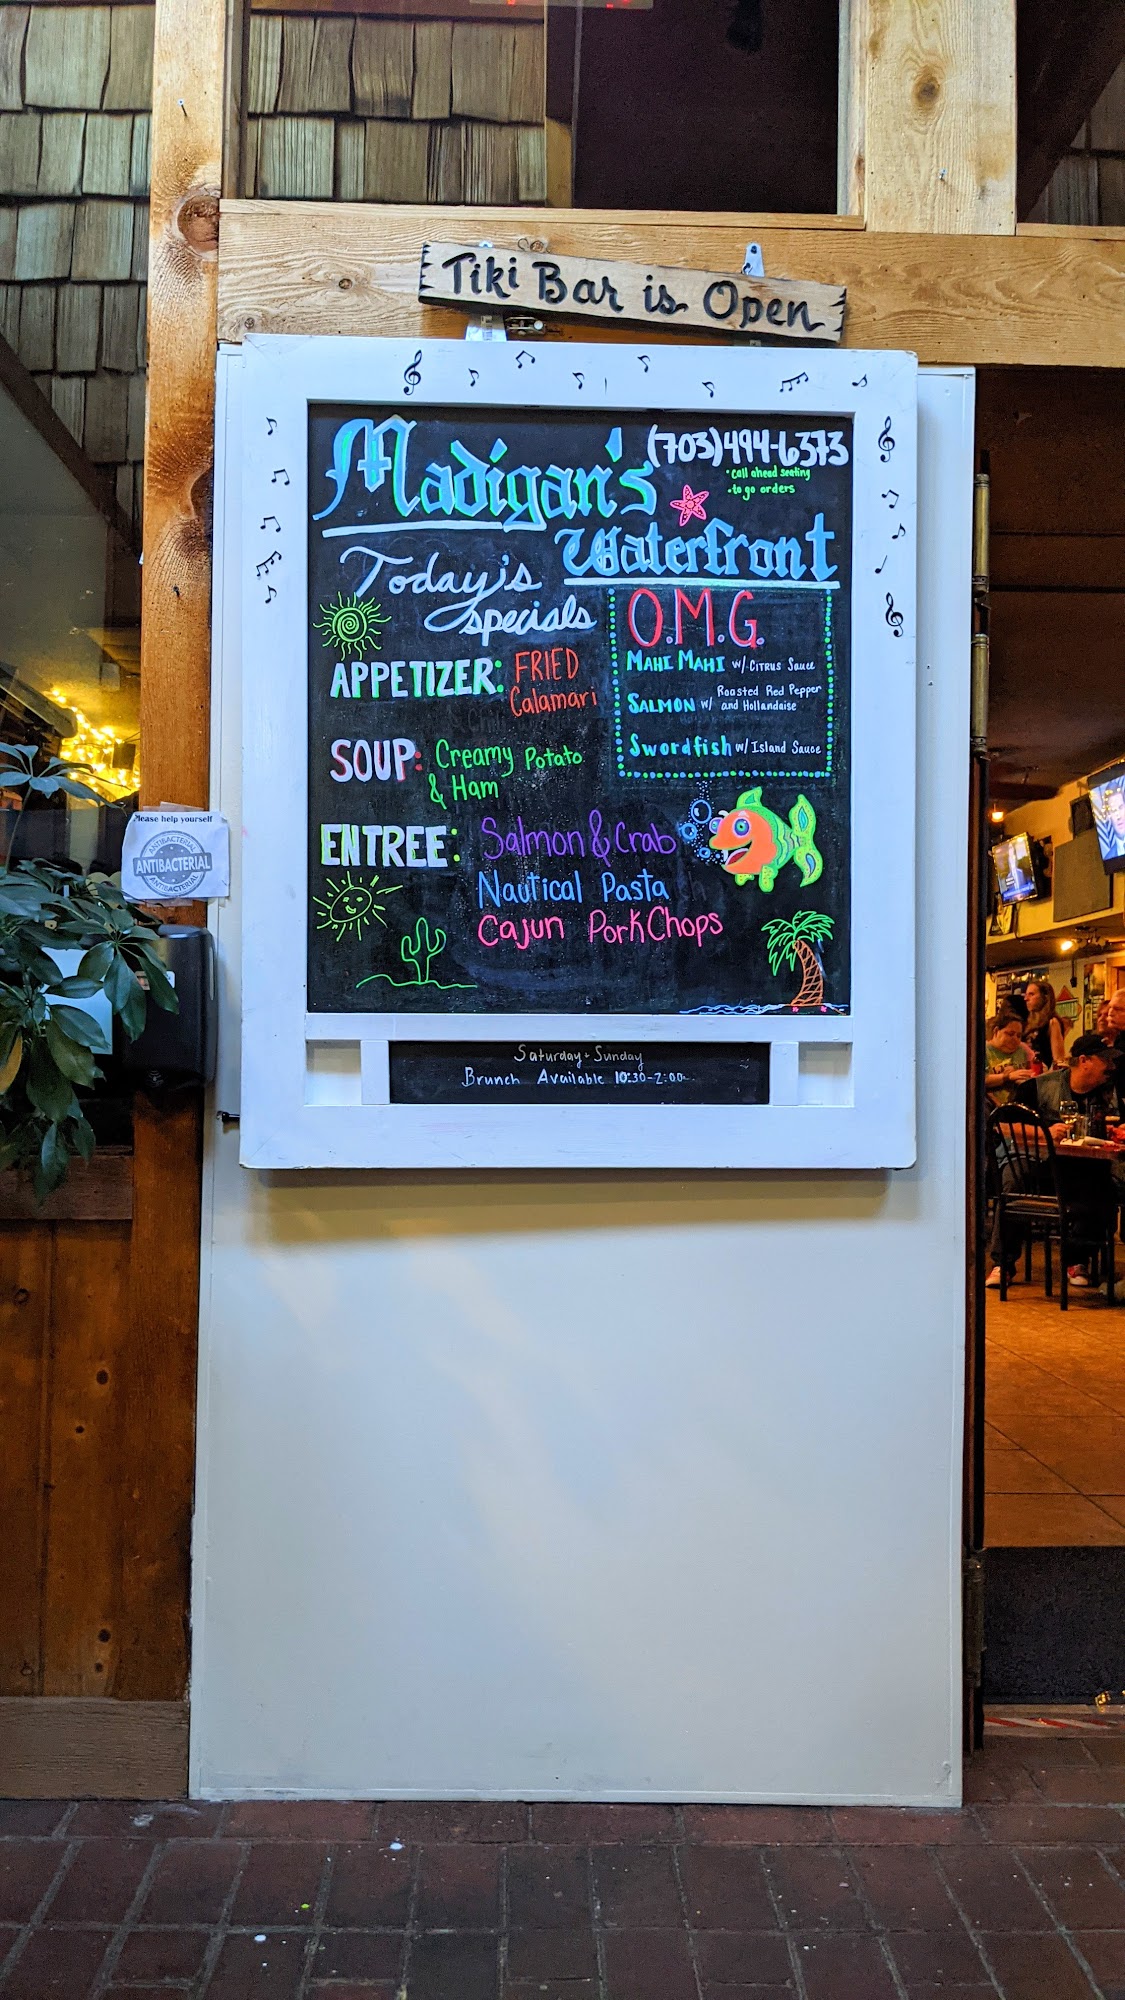 Tiki Bar is Open
Madigan's
(703)494-6373
• Call ahead seating
• to go orders
Waterfront
Today's
specials
APPETIZER: FRIED
Calamari
SOUP: Creamy Potato
& Ham
ENTREE: Salmon & Crab
Nautical Pasta
Cajun Pork Chops
O.M.G.
MAHI MAHI W/ CITRUS Sauce
SALMON W/ Roasted Red Pepper
and Hollandaise
Swordfish W/ Island Sauce
Saturday + Sunday
Brunch Available 10:30-2:00
Please help yourself
ANTIBACTERIAL
ANTIBACTERIAL
ANTIBACTERIAL